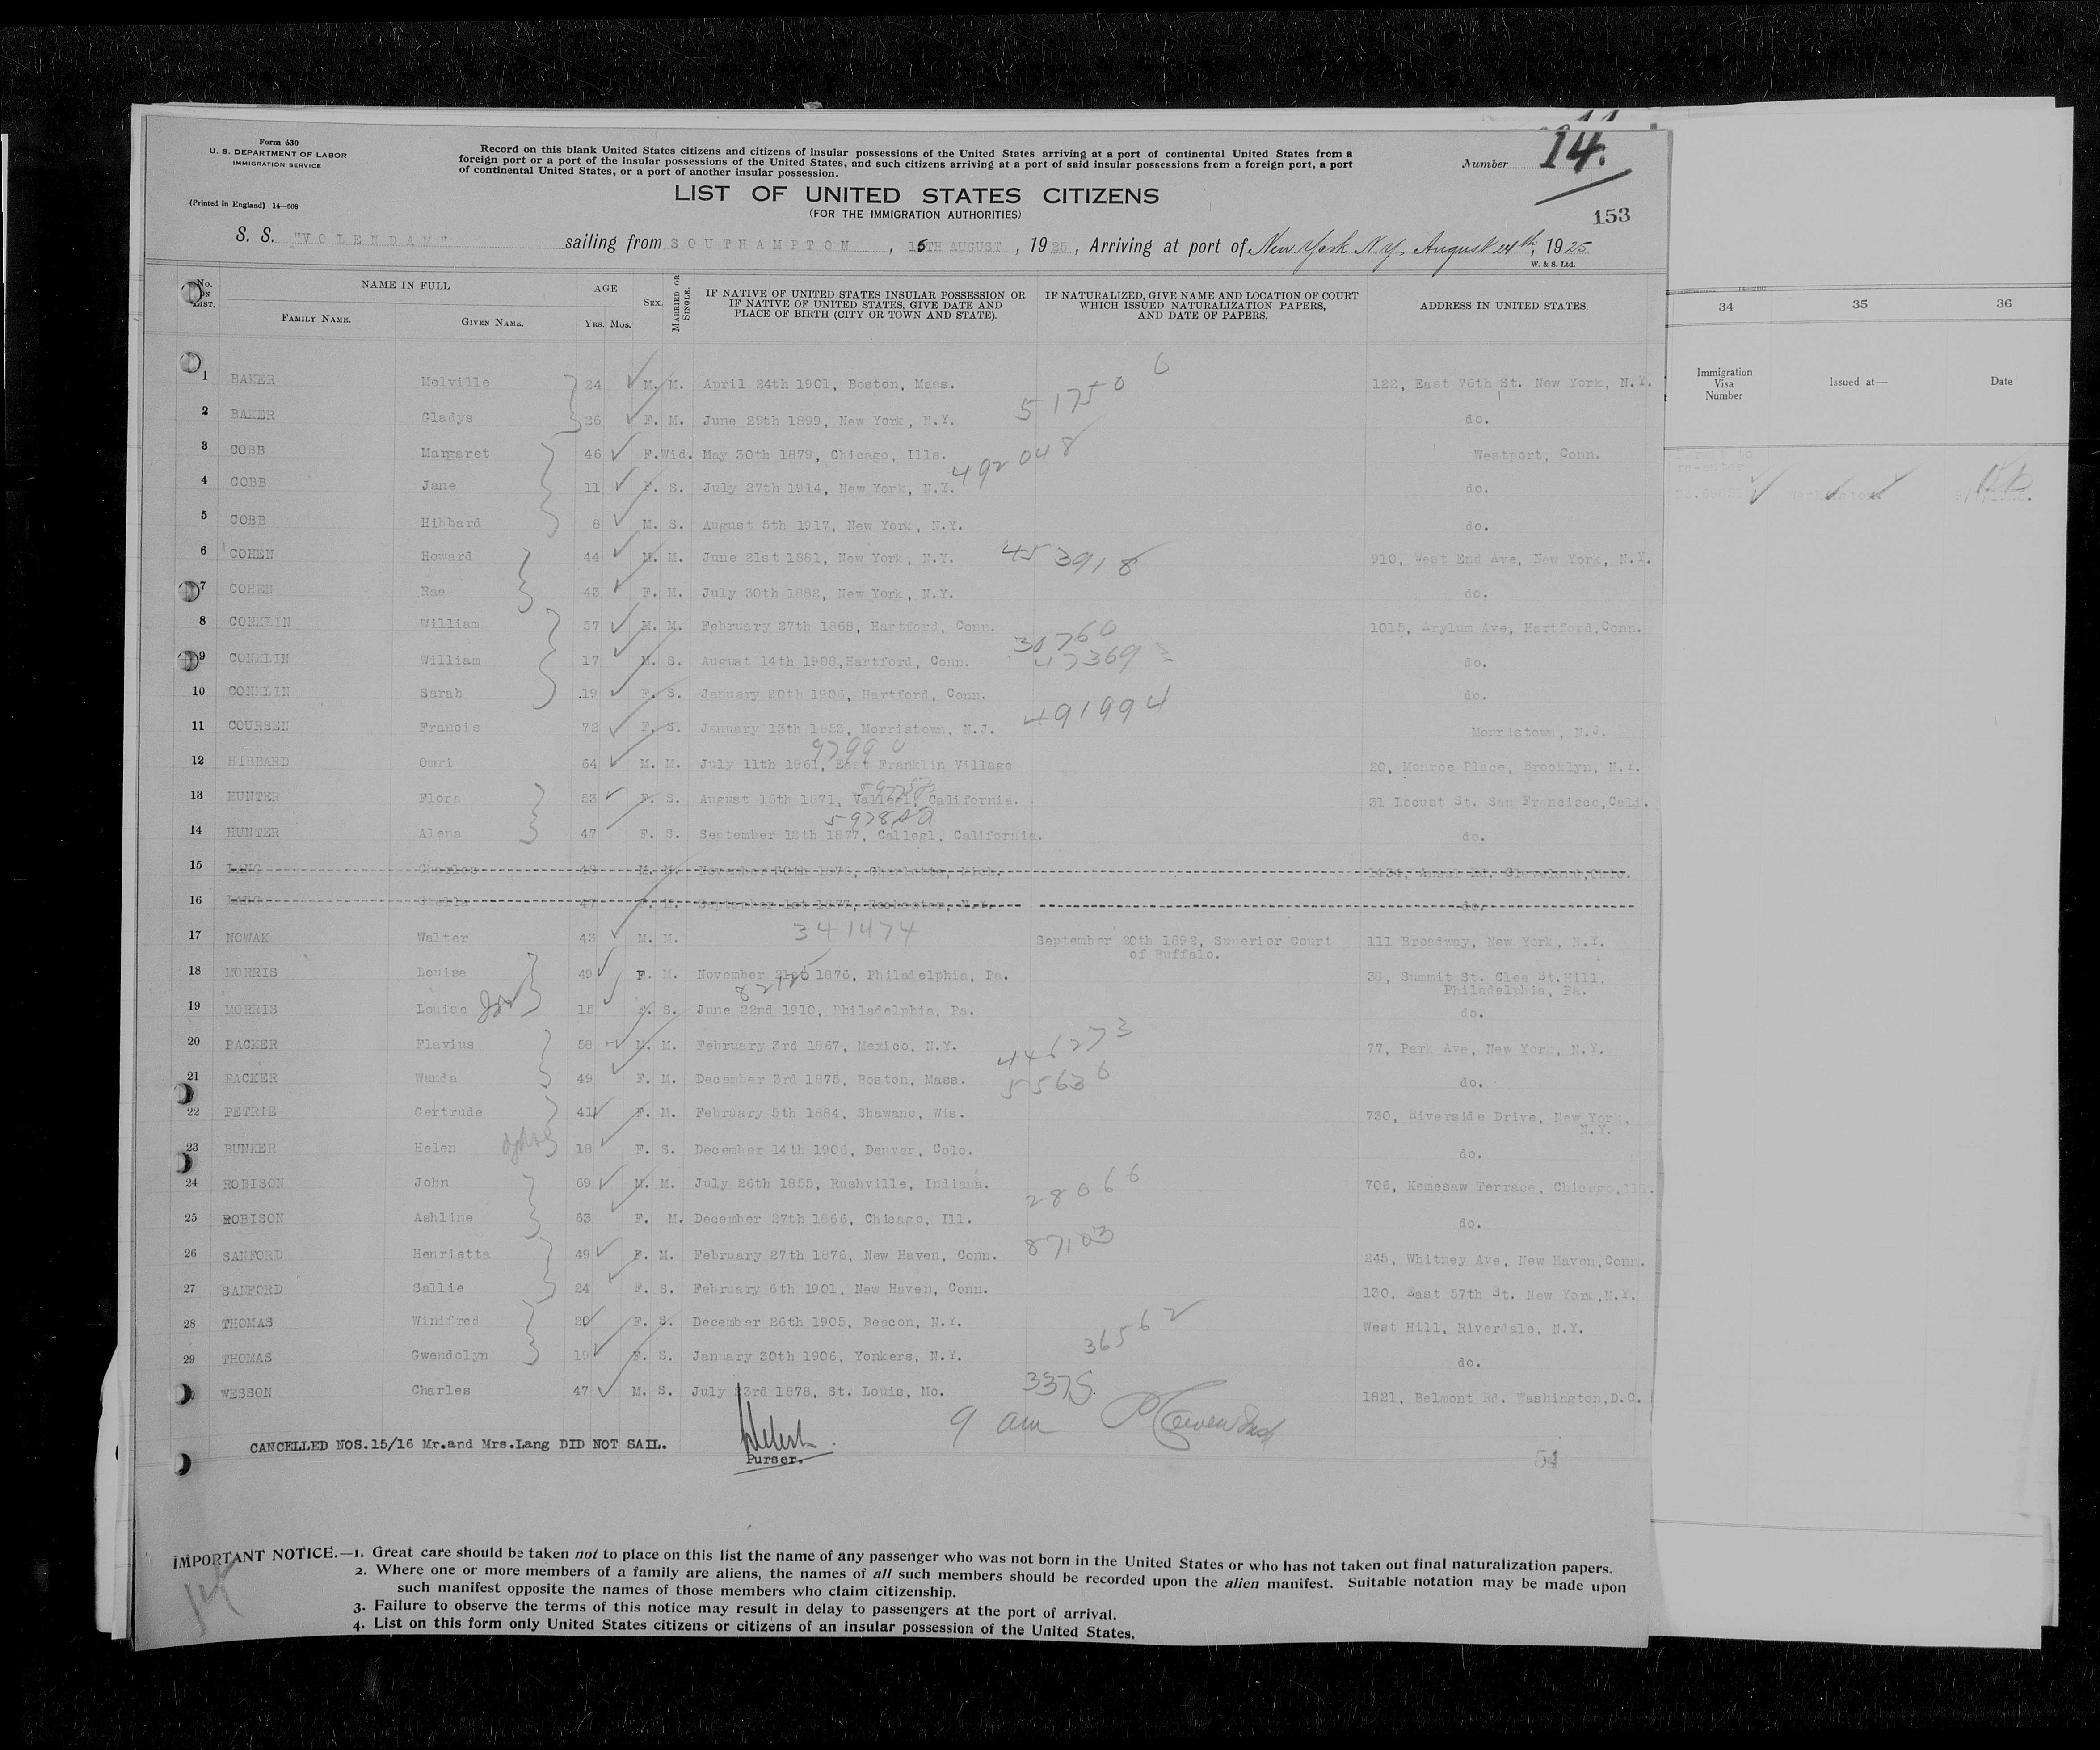 Form 630
U. S. DEPARTMENT OF LABOR
IMMIGRATION SERVICE
(Printed in England) 14—608
Record on this blank United States citizens and citizens of insular possessions of the United States arriving at a port of continental United States from a
foreign port or a port of the insular possessions of the United States, and such citizens arriving at a port of said insular possessions from a foreign port, a port
of continental United States, or a port of another insular possession.
Number 14.
LIST OF UNITED STATES CITIZENS
(FOR THE IMMIGRATION AUTHORITIES)
153
S. S. "VOLENDAM" sailing from SOUTHAMPTON, 15TH AUGUST, 1925, Arriving at port of New York N.Y. August 24th, 1925
W. & S. Ltd.
No. ON LIST. NAME IN FULL FAMILY NAME. GIVEN NAME. AGE YRS. MOS. SEX. MARRIED OR SINGLE. IF NATIVE OF UNITED STATES INSULAR POSSESSION OR IF NATIVE OF UNITED STATES, GIVE DATE AND PLACE OF BIRTH (CITY OR TOWN AND STATE). IF NATURALIZED, GIVE NAME AND LOCATION OF COURT WHICH ISSUED NATURALIZATION PAPERS, AND DATE OF PAPERS. ADDRESS IN UNITED STATES.
34 35 36
Immigration Visa Number Issued at— Date
1 BAKER Melville 24 M. M. April 24th 1901, Boston, Mass. 517506 122, East 76th St. New York, N.Y.
2 BAKER Gladys 26 F. M. June 29th 1899, New York, N.Y. do.
3 COBB Margaret 46 F. Wid. May 30th 1879, Chicago, Ills. 492048 Westport, Conn.
4 COBB Jane 11 F. S. July 27th 1914, New York, N.Y. do.
5 COBB Hibbard 8 M. S. August 5th 1917, New York, N.Y. do.
6 COHEN Howard 44 M. M. June 21st 1881, New York, N.Y. 453918 910, West End Ave, New York, N.Y.
7 COHEN Rae 43 F. M. July 30th 1882, New York, N.Y. do.
8 CONKLIN William 57 M. M. February 27th 1868, Hartford, Conn. 1015, Arylum Ave, Hartford,Conn.
9 CONKLIN William 17 M. S. August 14th 1908,Hartford, Conn. do.
10 CONKLIN Sarah 19 F. S. January 20th 1906, Hartford, Conn. do.
11 COURSEN Francis 72 F. S. January 13th 1853, Morristown, N.J. 491994 Morristown, N.J.
12 HIBBARD Omri 64 M. M. July 11th 1861, East Franklin Village 20, Monroe Place, Brooklyn, N.Y.
13 HUNTER Flora 53 F. S. August 16th 1871, California. 31 Locust St. San Francisco,Cali.
14 HUNTER Alena 47 F. S. September 12th 1877, Callegl, California. do.
15 LANG Charles 48 M. M. November 30th 1876, Charlotte, Mich. 1434, Ansel Rd. Cleveland,Ohio.
16 LANG Stella 47 F. M. September 1st 1877, Rochester, N.Y. do.
17 NOWAK Walter 43 M. M. 341474 September 20th 1892, Superior Court of Buffalo. 111 Broadway, New York, N.Y.
18 MORRIS Louise 49 F. M. November 21st 1876, Philadelphia, Pa. 38, Summit St. Ches St.Hill, Philadelphia, Pa.
19 MORRIS Louise 15 F. S. June 22nd 1910, Philadelphia, Pa. do.
20 PACKER Flavius 58 M. M. February 3rd 1867, Mexico, N.Y. 446273 77, Park Ave, New York, N.Y.
21 PACKER Wanda 49 F. M. December 3rd 1875, Boston, Mass. 55636 do.
22 PETRIE Gertrude 41 F. M. February 5th 1884, Shawano, Wis. 730, Riverside Drive, New York, N.Y.
23 BUNKER Helen 18 F. S. December 14th 1906, Denver, Colo. do.
24 ROBISON John 69 M. M. July 26th 1855, Rushville, Indiana. 28066 706, Kemesaw Terrace, Chicago,Ill.
25 ROBISON Ashline 63 F. M. December 27th 1866, Chicago, Ill. do.
26 SANFORD Henrietta 49 F. M. February 27th 1876, New Haven, Conn. 87103 245, Whitney Ave, New Haven,Conn.
27 SANFORD Sallie 24 F. S. February 6th 1901, New Haven, Conn. 130, East 57th St. New York,N.Y.
28 THOMAS Winifred 20 F. S. December 26th 1905, Beacon, N.Y. 36562 West Hill, Riverdale, N.Y.
29 THOMAS Gwendolyn 19 F. S. January 30th 1906, Yonkers, N.Y. do.
WESSON Charles 47 M. S. July 23rd 1878, St. Louis, Mo. 3375. 1821, Belmont Rd. Washington,D.C.
9 am
CANCELLED NOS.15/16 Mr.and Mrs.Lang DID NOT SAIL.
Purser.
54
IMPORTANT NOTICE.—1. Great care should be taken not to place on this list the name of any passenger who was not born in the United States or who has not taken out final naturalization papers.
2. Where one or more members of a family are aliens, the names of all such members should be recorded upon the alien manifest. Suitable notation may be made upon
such manifest opposite the names of those members who claim citizenship.
3. Failure to observe the terms of this notice may result in delay to passengers at the port of arrival.
4. List on this form only United States citizens or citizens of an insular possession of the United States.
14